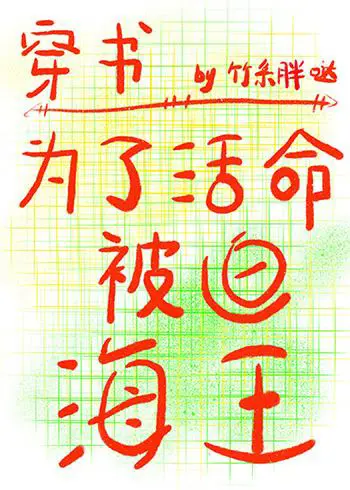 穿书 by 竹条胖哒
为了活命
被迫
海王